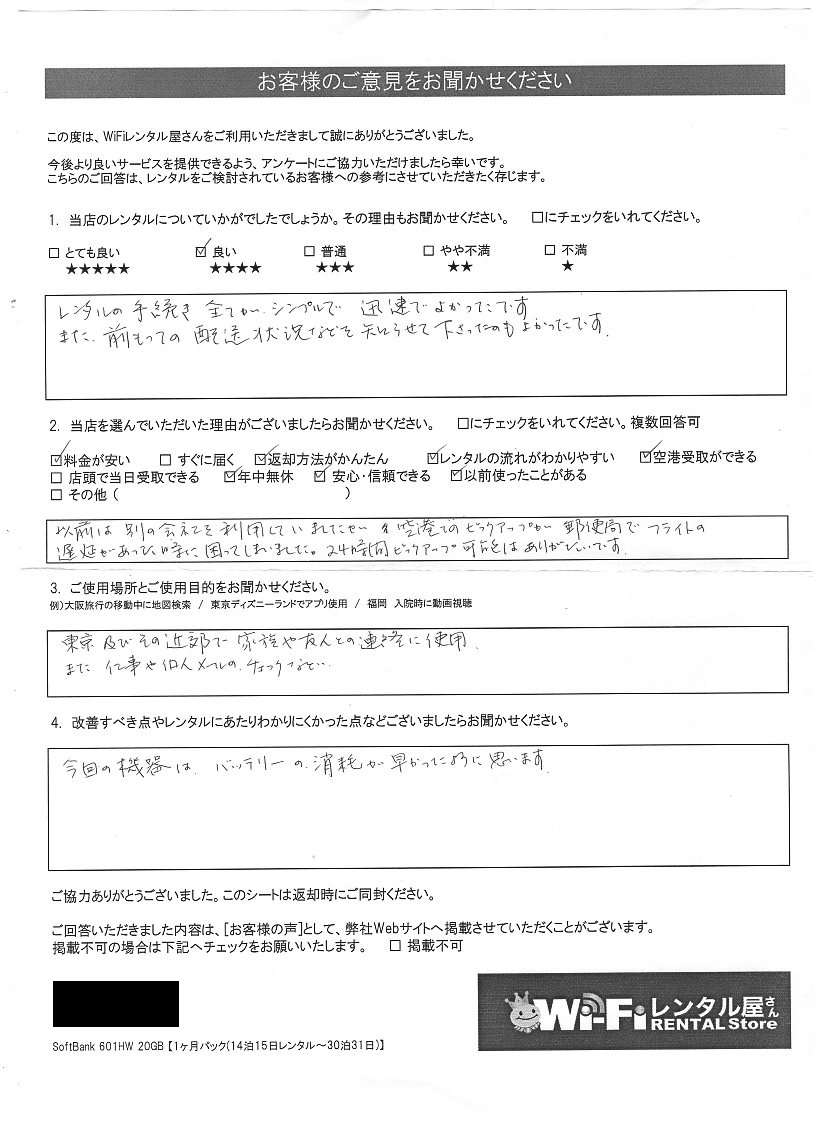 お客様のご意見をお聞かせください
この度は、WiFiレンタル屋さんをご利用いただきまして誠にありがとうございました。
今後より良いサービスを提供できるよう、アンケートにご協力いただけましたら幸いです。
こちらのご回答は、レンタルをご検討されているお客様への参考にさせていただきたく存じます。
1. 当店のレンタルについていかがでしたでしょうか。その理由もお聞かせください。 □にチェックをいれてください。
□ とても良い ☑ 良い □ 普通 □ やや不満 □ 不満
★★★★★ ★★★★ ★★★ ★★ ★
レンタルの手続き全てがシンプルで 迅速でよかったです
また、前もっての配送状況などを知らせて下さったのもよかったです。
2. 当店を選んでいただいた理由がございましたらお聞かせください。 □にチェックをいれてください。複数回答可
☑料金が安い □ すぐに届く ☑返却方法がかんたん ☑レンタルの流れがわかりやすい ☑空港受取ができる
□ 店頭で当日受取できる ☑年中無休 ☑ 安心・信頼できる ☑以前使ったことがある
□ その他 ( )
以前は別の会社を利用していましたが 空港でのピックアップが 郵便局でフライトの
遅延があった時に困ってしまいました。24時間ピックアップ可能はありがたいです。
3. ご使用場所とご使用目的をお聞かせください。
例)大阪旅行の移動中に地図検索 / 東京ディズニーランドでアプリ使用 / 福岡 入院時に動画視聴
東京及びその近郊で家族や友人との連絡に使用、
また仕事や個人メールの、チェックなど…
4. 改善すべき点やレンタルにあたりわかりにくかった点などございましたらお聞かせください。
今回の機器は、バッテリーの消耗が早かったように思います。
ご協力ありがとうございました。このシートは返却時にご同封ください。
ご回答いただきました内容は、[お客様の声]として、弊社Webサイトへ掲載させていただくことがございます。
掲載不可の場合は下記へチェックをお願いいたします。 □ 掲載不可
Wi-Fiレンタル屋さん
RENTAL Store
SoftBank 601HW 20GB【1ヶ月パック(14泊15日レンタル～30泊31日)】